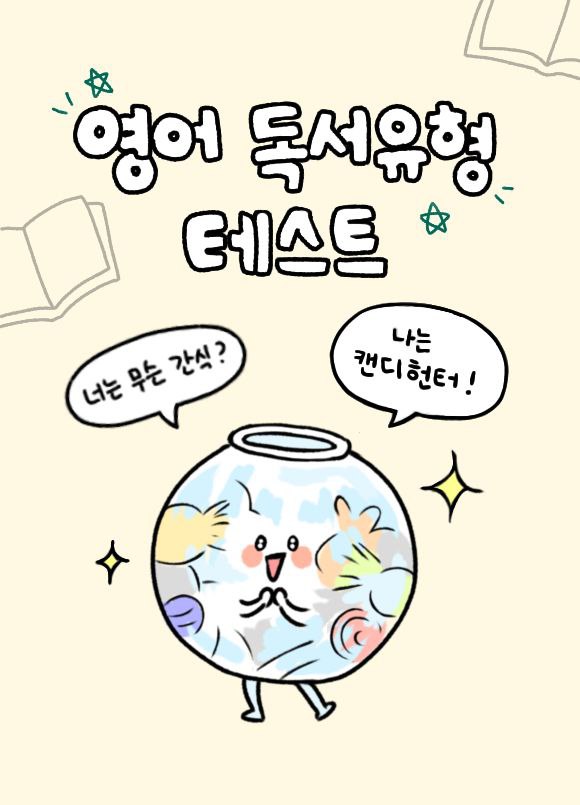 영어 독서유형
테스트
너는 무슨 간식?
나는
캔디헌터!